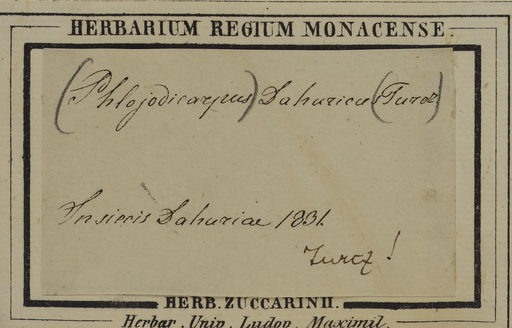 HERBARIUM REGIUM MONACENSE
(Phlojodicarpus) Dahuricus (Turcz)
In siccis Dahuriae 1831.
Turcz!
HERB. ZUCCARINII.
Herbar. Univ. Ludov. Maximil.